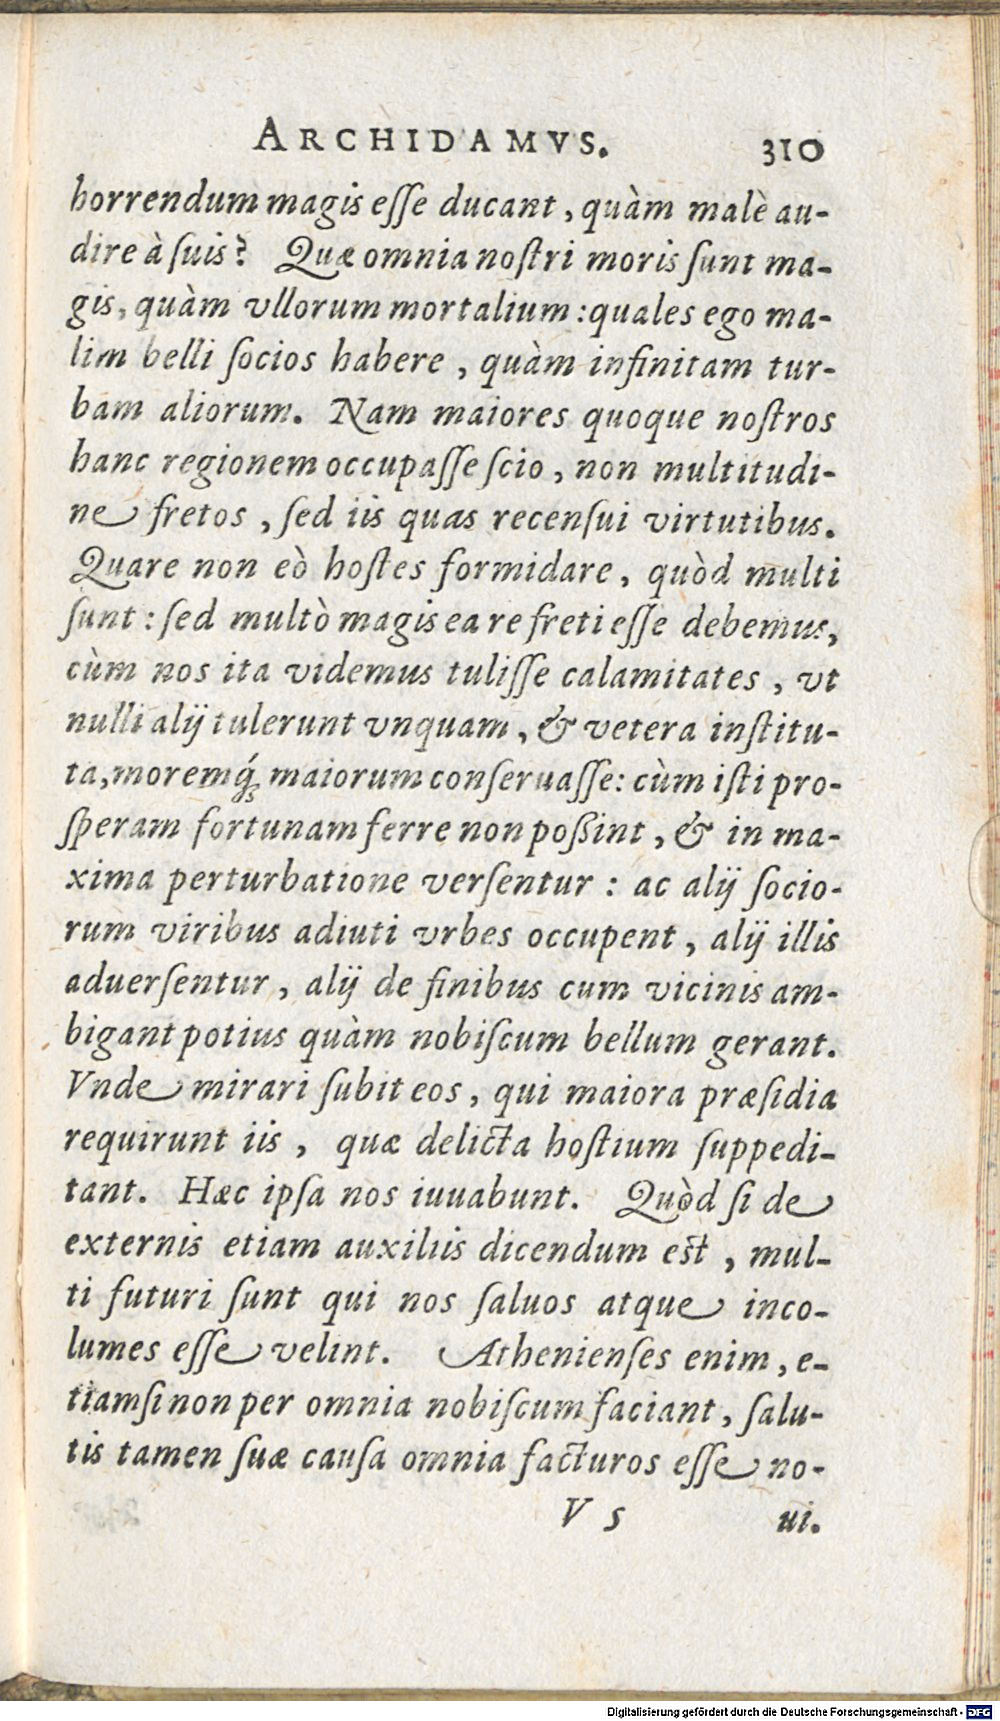 ARCHIDAMVS. 310
horrendum magis eſſe ducant, quàm malè au-
dire à ſuis? Quæ omnia noſtri moris ſunt ma-
gis, quàm vllorum mortalium: quales ego ma-
lim belli ſocios habere, quàm infinitam tur-
bam aliorum. Nam maiores quoque noſtros
hanc regionem occupaſſe ſcio, non multitudi-
ne fretos, ſed iis quas recenſui virtutibus.
Quare non eò hoſtes formidare, quòd multi
ſunt: ſed multò magis ea re freti eſſe debemus,
cùm nos ita videmus tuliſſe calamitates, vt
nulli alij tulerunt vnquam, & vetera inſtitu-
ta, moremq́; maiorum conſeruaſſe: cùm iſti pro-
ſperam fortunam ferre non poßint, & in ma-
xima perturbatione verſentur: ac alij ſocio-
rum viribus adiuti vrbes occupent, alij illis
aduerſentur, alij de finibus cum vicinis am-
bigant potius quàm nobiſcum bellum gerant.
Vnde mirari ſubit eos, qui maiora præſidia
requirunt iis, quæ delicta hoſtium ſuppedi-
tant. Hæc ipſa nos iuuabunt. Quòd ſi de
externis etiam auxiliis dicendum eſt, mul-
ti futuri ſunt qui nos ſaluos atque inco-
lumes eſſe velint. Athenienſes enim, e-
tiamſi non per omnia nobiſcum faciant, ſalu-
tis tamen ſuæ cauſa omnia facturos eſſe no-
V 5 ui.
Digitalisierung gefördert durch die Deutsche Forschungsgemeinschaft - DFG